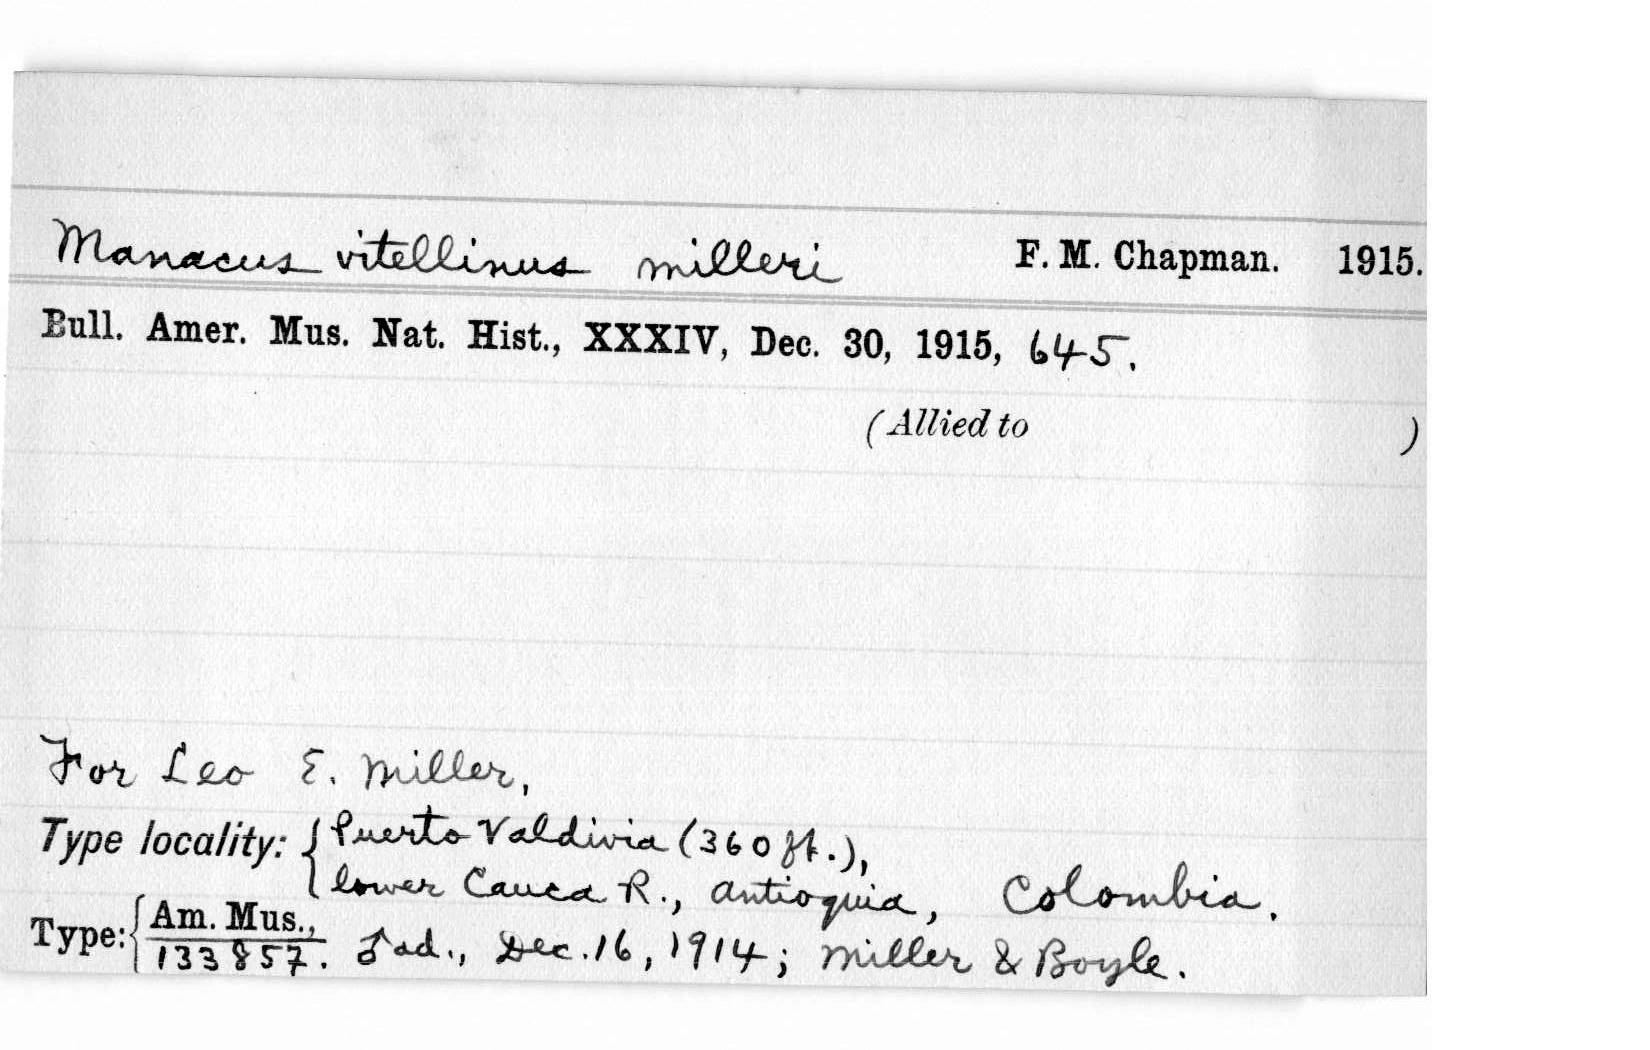 Manacus vitellinus milleri F. M. Chapman. 1915.
Bull. Amer. Mus. Nat. Hist., XXXIV, Dec. 30, 1915, 645.
(Allied to )
For Leo E. Miller,
Type locality: { Puerto Valdivia (360 ft.),
lower Cauca R., Antioquia, Colombia.
Type: { Am. Mus.,
133857. ♂ ad., Dec. 16, 1914; Miller & Boyle.